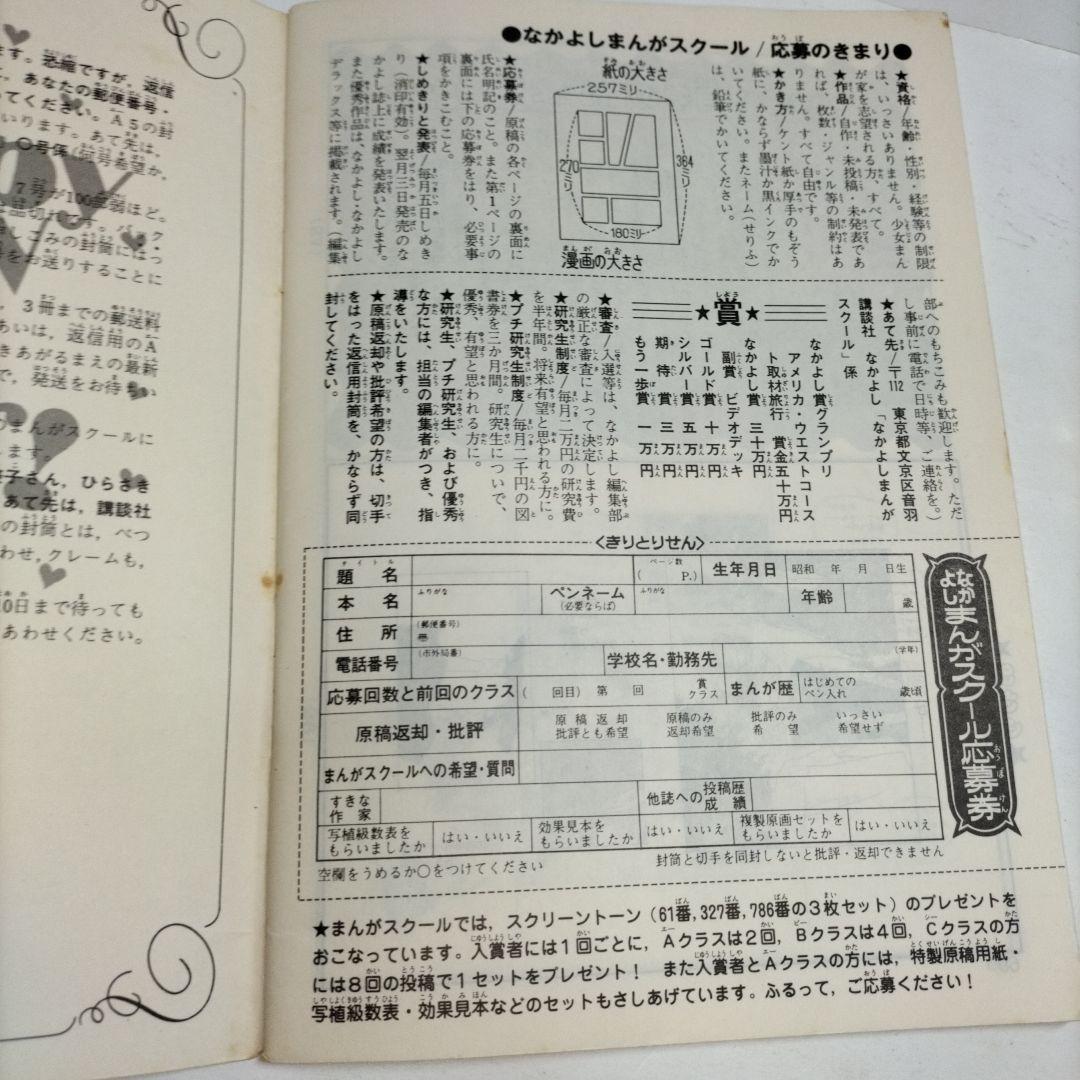 ●なかよしまんがスクール/応募のきまり●
★資格/年齢・性別・経験等の制限
は、いっさいありません。少女まん
が家を志望される方、すべて。
★作品/自作・未投稿・未発表であ
れば、枚数・ジャンル等の制約はあ
りません。すべて自由です。
★かき方/ケント紙か厚手のもぞう
紙に、かならず墨汁か黒インクでか
いてください。またネーム(せりふ)
は、鉛筆でかいてください。
紙の大きさ
257ミリ
364ミリ
270ミリ
180ミリ
漫画の大きさ
★応募券/原稿の各ページの裏面に
氏名明記のこと。また第1ページの
裏面には下の応募券をはり、必要事
項をかきこむこと。
★しめきりと発表/毎月五日しめき
り(消印有効)。翌月三日発売のな
かよし誌上に成績を発表いたします。
また優秀作品は、なかよし・なかよし
デラックス等に掲載されます。(編集
部へのもちこみも歓迎します。ただ
し事前に電話で日時等、ご連絡を。)
★あて先/〒112 東京都文京区音羽
講談社 なかよし「なかよしまんが
スクール」係
★賞★
なかよし賞グランプリ
アメリカ・ウエストコース
ト取材旅行 賞金五十万円
なかよし賞 三十万円
副賞 ビデオデッキ
ゴールド賞 十万円
シルバー賞 五万円
期待賞 三万円
もう一歩賞 一万円
★審査/入選等は、なかよし編集部
の厳正な審査によって決定します。
★研究生制度/毎月二万円の研究費
を半年間。将来有望と思われる方に。
★プチ研究生制度/毎月二千円の図
書券を三か月間。研究生についで、
優秀、有望と思われる方に。
★研究生、プチ研究生、および優秀
な方には、担当の編集者がつき、指
導をいたします。
★原稿返却や批評希望の方は、切手
をはった返信用封筒を、かならず同
封してください。
<きりとりせん>
なかよしまんがスクール応募券
題名 タイトル ページ数 ( P.) 生年月日 昭和 年 月 日生
本名 ふりがな ペンネーム (必要ならば) ふりがな 年齢 歳
住所 (郵便番号) 〒
電話番号 (市外局番) 学校名・勤務先 (学年)
応募回数と前回のクラス ( 回目) 第 回 賞 クラス まんが歴 はじめての ペン入れ 歳頃
原稿返却・批評 原稿返却 批評とも希望 原稿のみ 返却希望 批評のみ 希望 いっさい 希望せず
まんがスクールへの希望・質問
すきな 作家 他誌への投稿歴 成績
写植級数表を もらいましたか はい・いいえ 効果見本を もらいましたか はい・いいえ 複製原画セットを もらいましたか はい・いいえ
空欄をうめるか○をつけてください 封筒と切手を同封しないと批評・返却できません
★まんがスクールでは,スクリーントーン(61番,327番,786番の3枚セット)のプレゼントを
おこなっています。入賞者には1回ごとに,Aクラスは2回,Bクラスは4回,Cクラスの方
には8回の投稿で1セットをプレゼント! また入賞者とAクラスの方には,特製原稿用紙・
写植級数表・効果見本などのセットもさしあげています。ふるって,ご応募ください!
ます。恐縮ですが,返信
,あなたの郵便番号・
ってください。A5の封
いります。あて先は,
○号係(何号希望か,
7号が100部弱ほど。
品切れです。バック・
しこみの封筒にはっ
をお送りすることに
,3冊までの郵送料
あるいは,返信用のA
きあがるまえの最新
で,発送をお待ちい
のまんがスクールに
します。
子さん,ひらさき
あて先は,講談社
の封筒とは,べつ
わせ,クレームも,
10日まで待っても
あわせください。